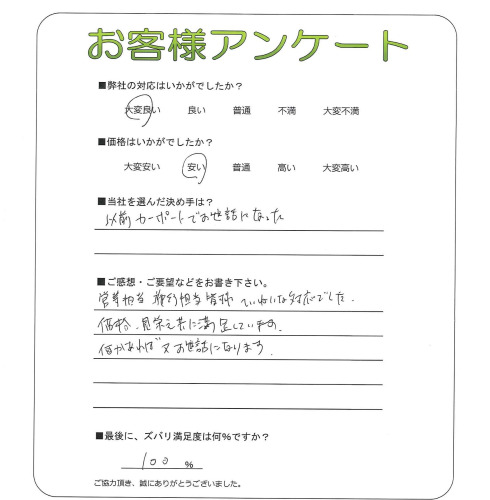 お客様アンケート
■弊社の対応はいかがでしたか？
大変良い 良い 普通 不満 大変不満
■価格はいかがでしたか？
大変安い 安い 普通 高い 大変高い
■当社を選んだ決め手は？
以前カーポートでお世話になった
■ご感想・ご要望などをお書き下さい。
営業担当 施行担当皆様 ていねいな対応でした。
価格、見栄え共に満足しています。
何かあれば又お世話になります。
■最後に、ズバリ満足度は何％ですか？
100 ％
ご協力頂き、誠にありがとうございました。